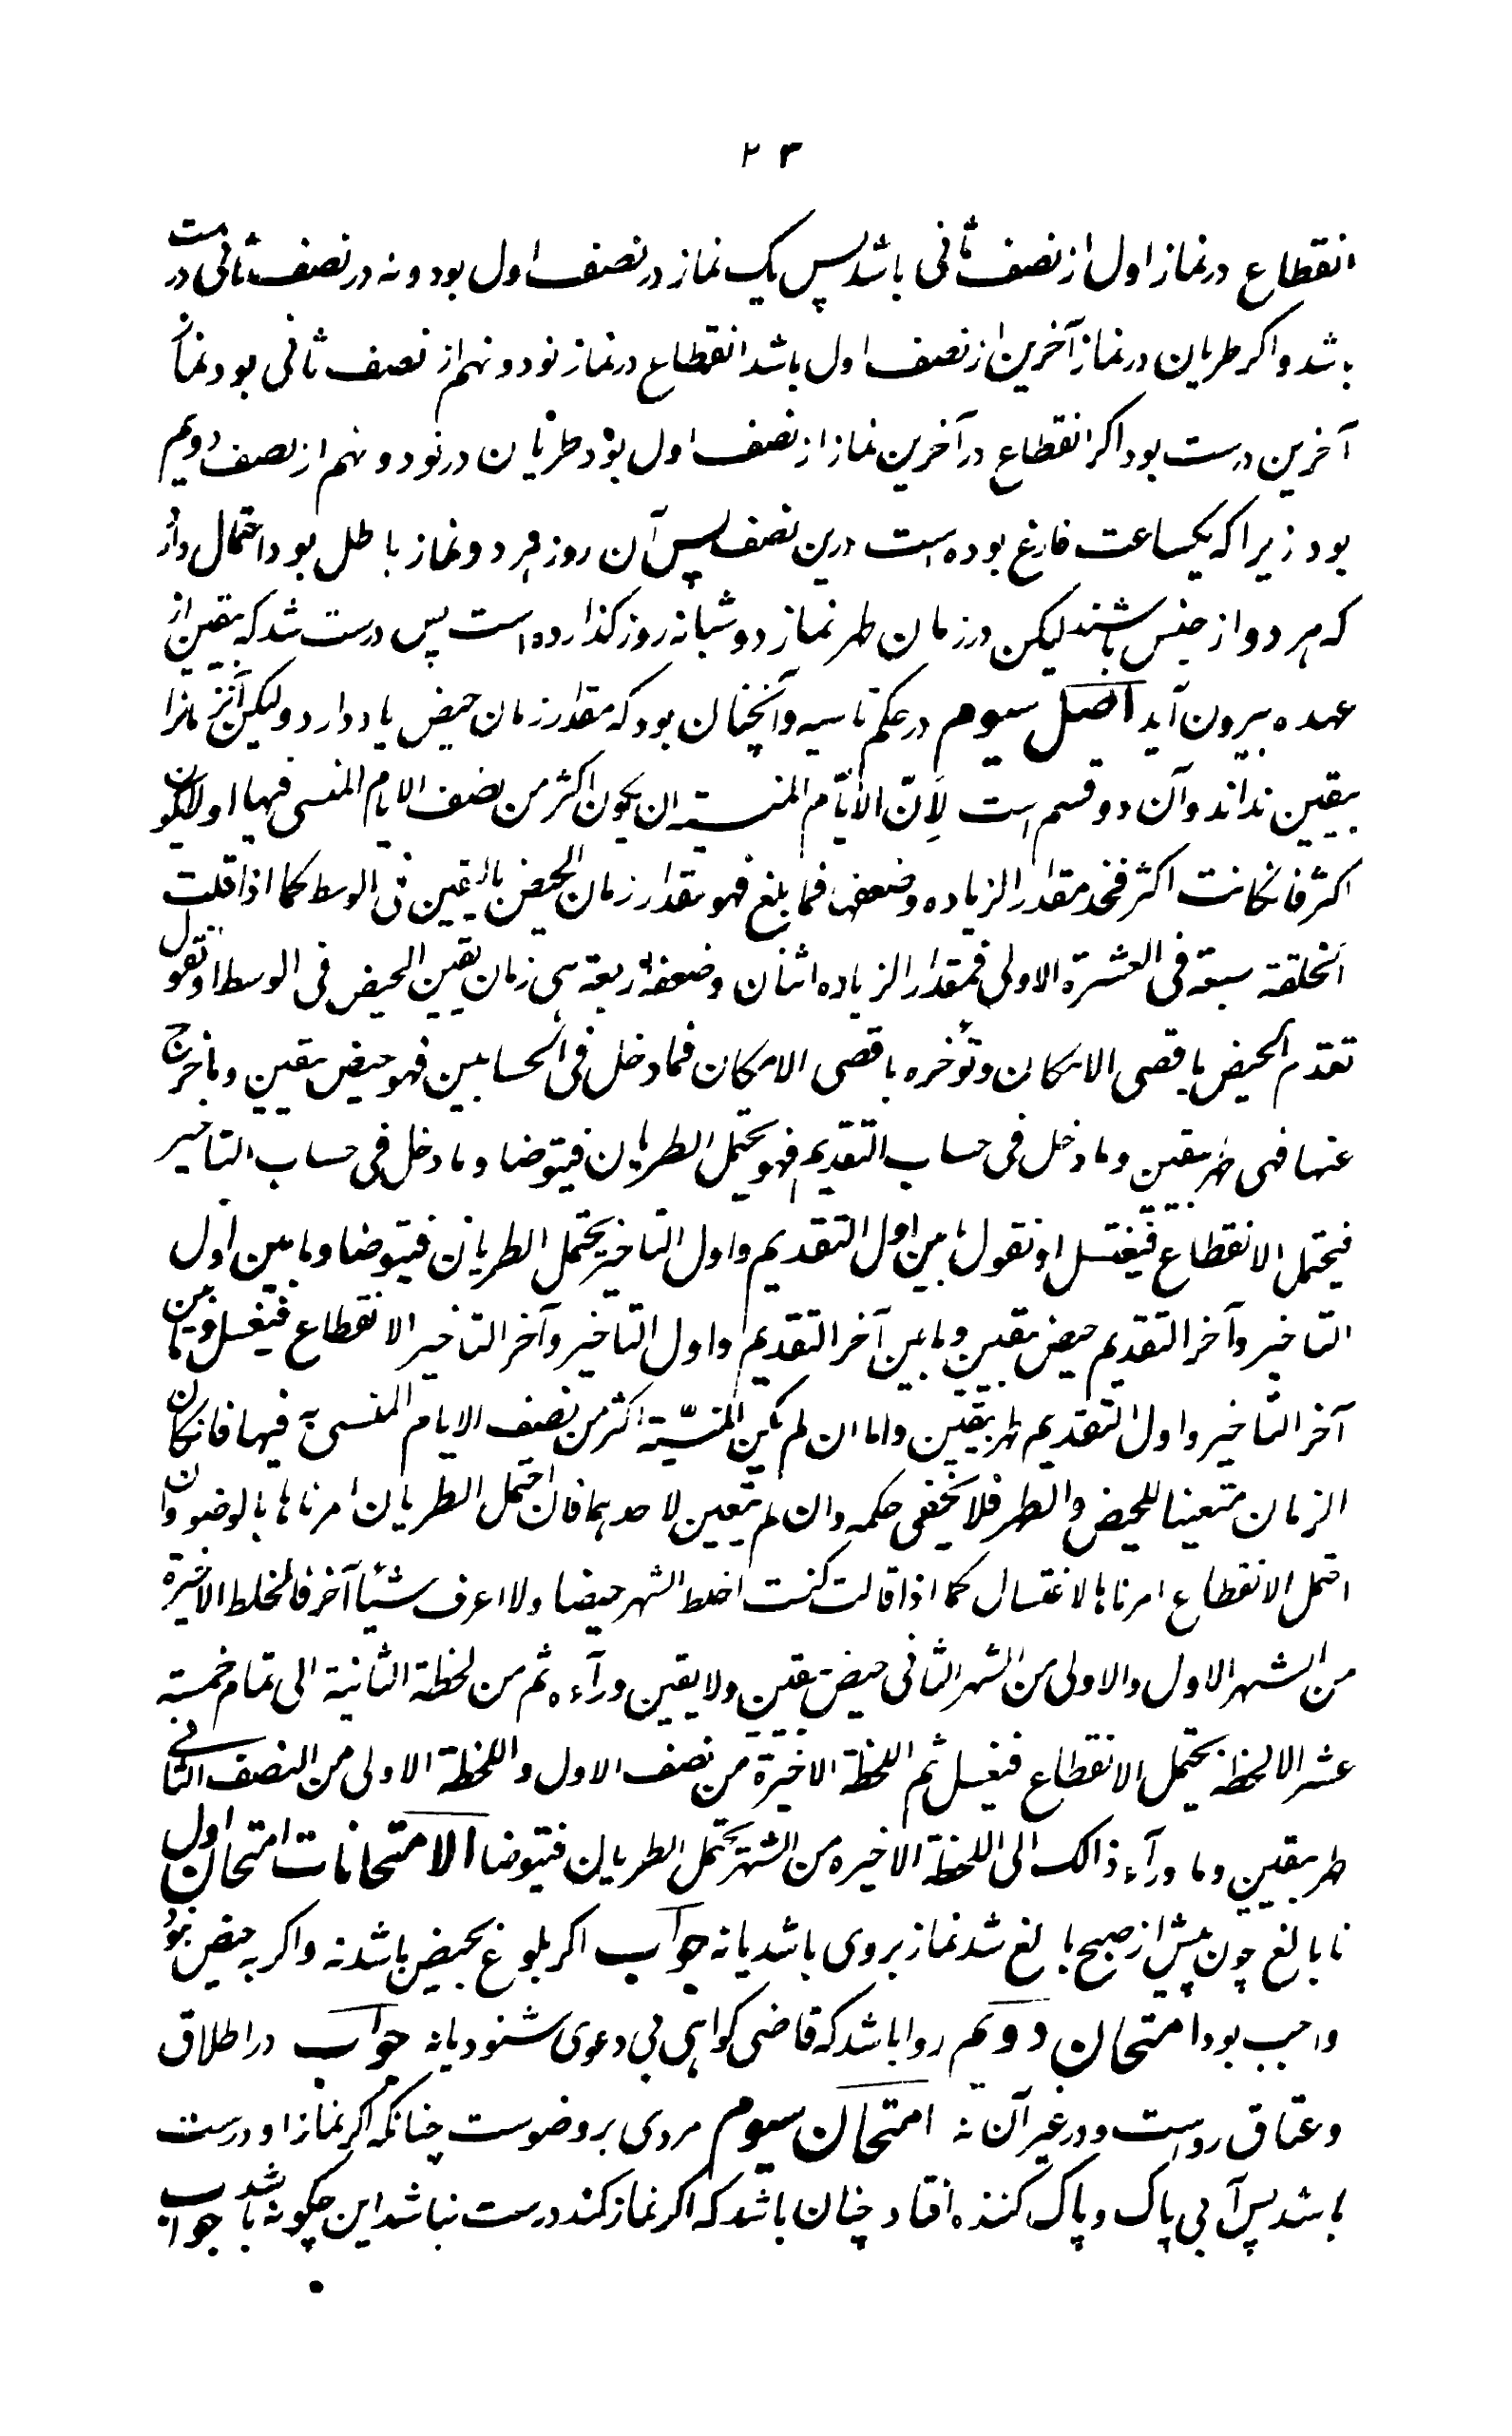 ۲۳
انقطاع در نماز اول از نصف ثانی باشد پس یک نماز در نصف اول بود و نه در نصف ثانی درست
باشد و اکر طریان در نماز آخرین از نصف اول باشد انقطاع در نماز نود و نهم از نصف ثانی بود نماز
آخرین درست بود اکر انقطاع در آخرین نماز از نصف اول بود طریان در نود و نهم از نصف دویم
بود زیرا که یکساعت فارغ بوده است درین نصف پس آن روز هر دو نماز باطل بود احتمال دارد
که هر دو از جنس باشند لیکن در زمان طهر نماز دو شبانه روز کذارده است پس درست شد که بیقین از
عهده بیرون آید اصل سیوم در حکم ناسیه و آنچنان بود که مقدار زمان حیض یاد دارد ولیکن آنزمانرا
بیقین نداند و آن دو قسم است لانّ الایّام المنسیة ان یکون اکثر من نصف الایام المنسی فیها او لایکون
اکثر فانکانت اکثر فخذ مقدار الزیاده وضعفه فما بلغ فهو مقدار زمان الحیض بالیقین فی الوسط کما اذا قلت
سبعة فی العشرة الاولی فمقدار الزیاده اثنان وضعفه اربعة هی زمان یقین الحیض فی الوسط او تقول
تقدم الحیض باقصی الامکان وتؤخره باقصی الامکان فما دخل فی الحسابین فهو حیض بیقین وما خرج
عنها فهی طهر بیقین وما دخل فی حساب التقدیم فهو یحتمل الطریان فیتوضا وما دخل فی حساب التاخیر
فیحتمل الانقطاع فیغتسل او نقول ما بین اول التقدیم واول التاخیر یحتمل الطریان فیتوضا وما بین اول
التاخیر وآخر التقدیم حیض بیقین وما بین آخر التقدیم واول التاخیر وآخر التاخیر الانقطاع فیغسل وما بین
آخر التاخیر واول التقدیم طهر بیقین واما ان لم یکن المنسیّة اکثر من نصف الایام المنسیّة فیها فانکان
الزمان متعینا للحیض والطهر فلا یخفی حکمه وان لم یتعین لاحدهما فان احتمل الطریان امرناها بالوضوء وان
احتمل الانقطاع امرناها لاغتسال کما اذا قالت کنت اخلط الشهر حیضا ولا اعرف شیئا آخر فالخلط الاخیرة
من الشهر الاول والاولی من الشهر الثانی حیض بیقین ولا یقین ورآءه ثم من لحظة الثانیة الی تمام خمسة
عشر الا لحظة یحتمل الانقطاع فیغسل ثم اللحظة الاخیرة من نصف الاول واللحظة الاولی من النصف الثانی
طهر بیقین وما ورآء ذالک الی اللحظة الاخیره من الشهر یحتمل الطریان فیتوضا الامتحانات امتحان اول
نابالغ چون پیش از صبح بالغ شد نماز بروی باشد یا نه جواب اکر بلوغ بحیض باشد نه واکر به حیض نبود
واجب بود امتحان دویم روا باشد که قاضی کواهی بی دعوی شنود یا نه جواب در اطلاق
وعتاق رواست ودر غیر آن نه امتحان سیوم مردی بر وضوست چنانکه اکر نماز او درست
باشد پس آبی پاک و پاک کننده افتاد چنان باشد که اکر نماز کند درست نباشد این چکونه باشد جواب